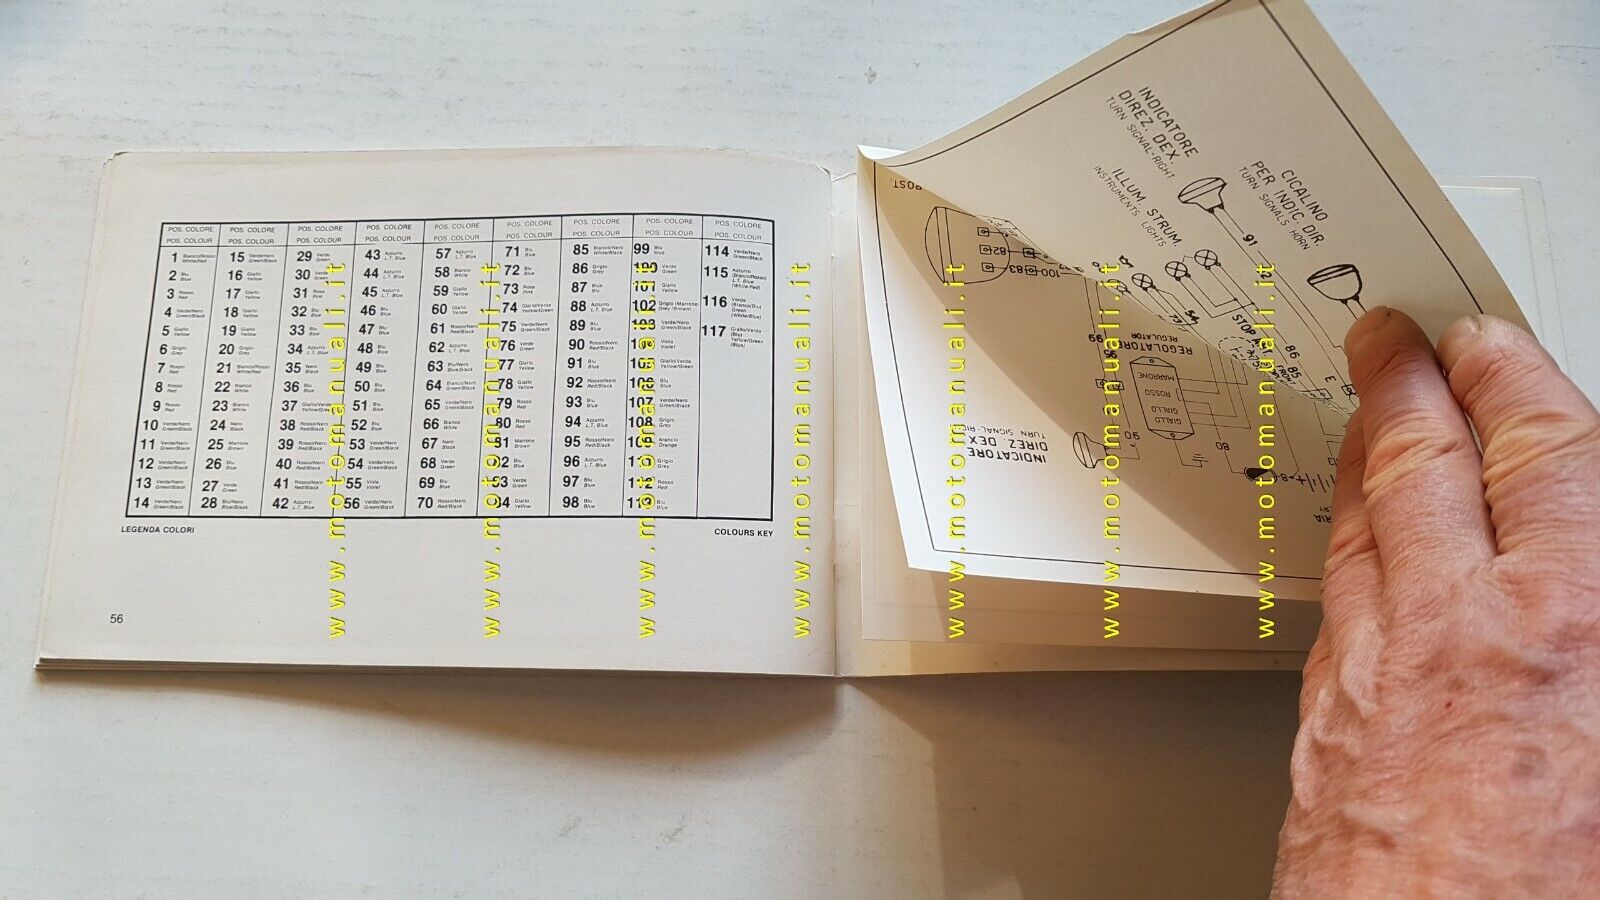 POS. COLORE POS. COLORE POS. COLORE POS. COLORE POS. COLORE POS. COLORE POS. COLORE POS. COLORE POS. COLORE
POS. COLOUR POS. COLOUR POS. COLOUR POS. COLOUR POS. COLOUR POS. COLOUR POS. COLOUR POS. COLOUR POS. COLOUR
1 Bianco/Rosso White/Red
2 Blu Blue
3 Rosso Red
4 Verde/Nero Green/Black
5 Giallo Yellow
6 Grigio Grey
7 Rosso Red
8 Rosso Red
9 Rosso Red
10 Verde/Nero Green/Black
11 Verde/Nero Green/Black
12 Verde/Nero Green/Black
13 Verde/Nero Green/Black
14 Verde/Nero Green/Black
15 Verde/nero Green/Black
16 Giallo Yellow
17 Giallo Yellow
18 Giallo Yellow
19 Giallo Yellow
20 Grigio Grey
21 Bianco/Rosso White/Red
22 Bianco White
23 Bianco White
24 Nero Black
25 Marrone Brown
26 Blu Blue
27 Verde Green
28 Blu/Nero Blue/Black
29 Verde Green
30 Verde Green
31 Rosa Pink
32 Blu Blue
33 Blu Blue
34 Azzurro L.T. Blue
35 Nero Black
36 Blu Blue
37 Giallo/Verde Yellow/Green
38 Rosso/Nero Red/Black
39 Rosso/Nero Red/Black
40 Rosso/Nero Red/Black
41 Rosso/Nero Red/Black
42 Azzurro L.T. Blue
43 Azzurro L.T. Blue
44 Azzurro L.T. Blue
45 Azzurro L.T. Blue
46 Blu Blue
47 Blu Blue
48 Blu Blue
49 Blu Blue
50 Blu Blue
51 Blu Blue
52 Blu Blue
53 Verde/Nero Green/Black
54 Verde/nero Green/Black
55 Viola Violet
56 Verde/Nero Green/Black
57 Azzurro L.T. Blue
58 Bianco White
59 Giallo Yellow
60 Giallo Yellow
61 Rosso/Nero Red/Black
62 Azzurro L.T. Blue
63 Blu/Nero Green/Black
64 Bianco/Nero Green/Black
65 Verde/Nero Green/Black
66 Bianco White
67 Nero Black
68 Verde Green
69 Blu Blue
70 Rosso/Nero Red/Black
71 Blu Blue
72 Blu Blue
73 Rosa Pink
74 Giallo/Verde Yellow/Green
75 Verde/Nero Green/Black
76 Verde Green
77 Giallo Yellow
78 Giallo Yellow
79 Rosso Red
80 Rosso Red
81 Marrone Brown
82 Blu Blue
83 Verde Green
84 Giallo Yellow
85 Bianco/Nero White/Black
86 Grigio Grey
87 Blu Blu
88 Azzurro L.T. Blue
89 Blu Blue
90 Rosso/Nero Red/Black
91 Blu Blue
92 Rosso/Nero Red/Black
93 Blu Blue
94 Azzurro L.T. Blue
95 Rosso/Nero Red/Black
96 Azzurro L.T. Blue
97 Blu Blue
98 Blu Blue
99 Blu Blue
100 Verde Green
101 Giallo Yellow
102 Grigio (Marrone) Grey (Brown)
103 Verde/Nero Green/Black
Viola Violet
105 Giallo/Verde Yellow/Green
106 Blu Blue
107 Verde/Nero Green/Black
108 Grigio Grey
109 Arancio Orange
Grigio Grey
112 Rosso Red
113 Blu Blue
114 Verde/Nero Green/Black
115 Azzurro (Bianco/Rosso) L.T. Blue (White-Red)
116 Verde (Bianco/Blu) Green (White/Blue)
117 Giallo/Verde (Blu) Yellow/Green (Blue)
LEGENDA COLORI
COLOURS KEY
56
INDICATORE
DIREZ. DEX.
TURN SIGNAL-RIGHT
CICALINO
PER INDIC. DIR.
TURN SIGNALS HORN
ILLUM. STRUM.
INSTRUMENTS LIGHTS
91
54
STOP
86
85
E
POST.
82
100 83
99
REGOLATORE
REGULATOR
MARRONE
ROSSO
GIALLO
GIALLO
90
80
INDICATORE
DIREZ. DEX
TURN SIGNAL-RIG
www.motomanuali.it
www.motomanuali.it
www.motomanuali.it
www.motomanuali.it
www.motomanuali.it
www.motomanuali.it
www.motomanuali.it